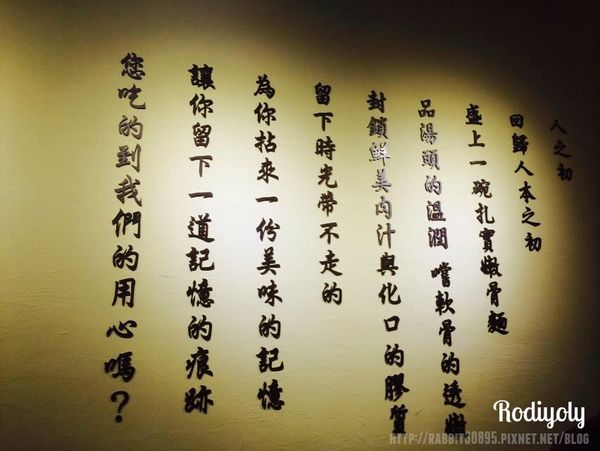 人之初
回歸人本之初
盛上一碗扎實嫩骨麵
品湯頭的溫潤 嚐軟骨的透嫩
封鎖鮮美肉汁與化口的膠質
留下時光帶不走的
為你拈來一份美味的記憶
讓你留下一道記憶的痕跡
您吃的到我們的用心嗎？
Rodiyoly
HTTP://RABBIT30895.PIXNET.NET/BLOG